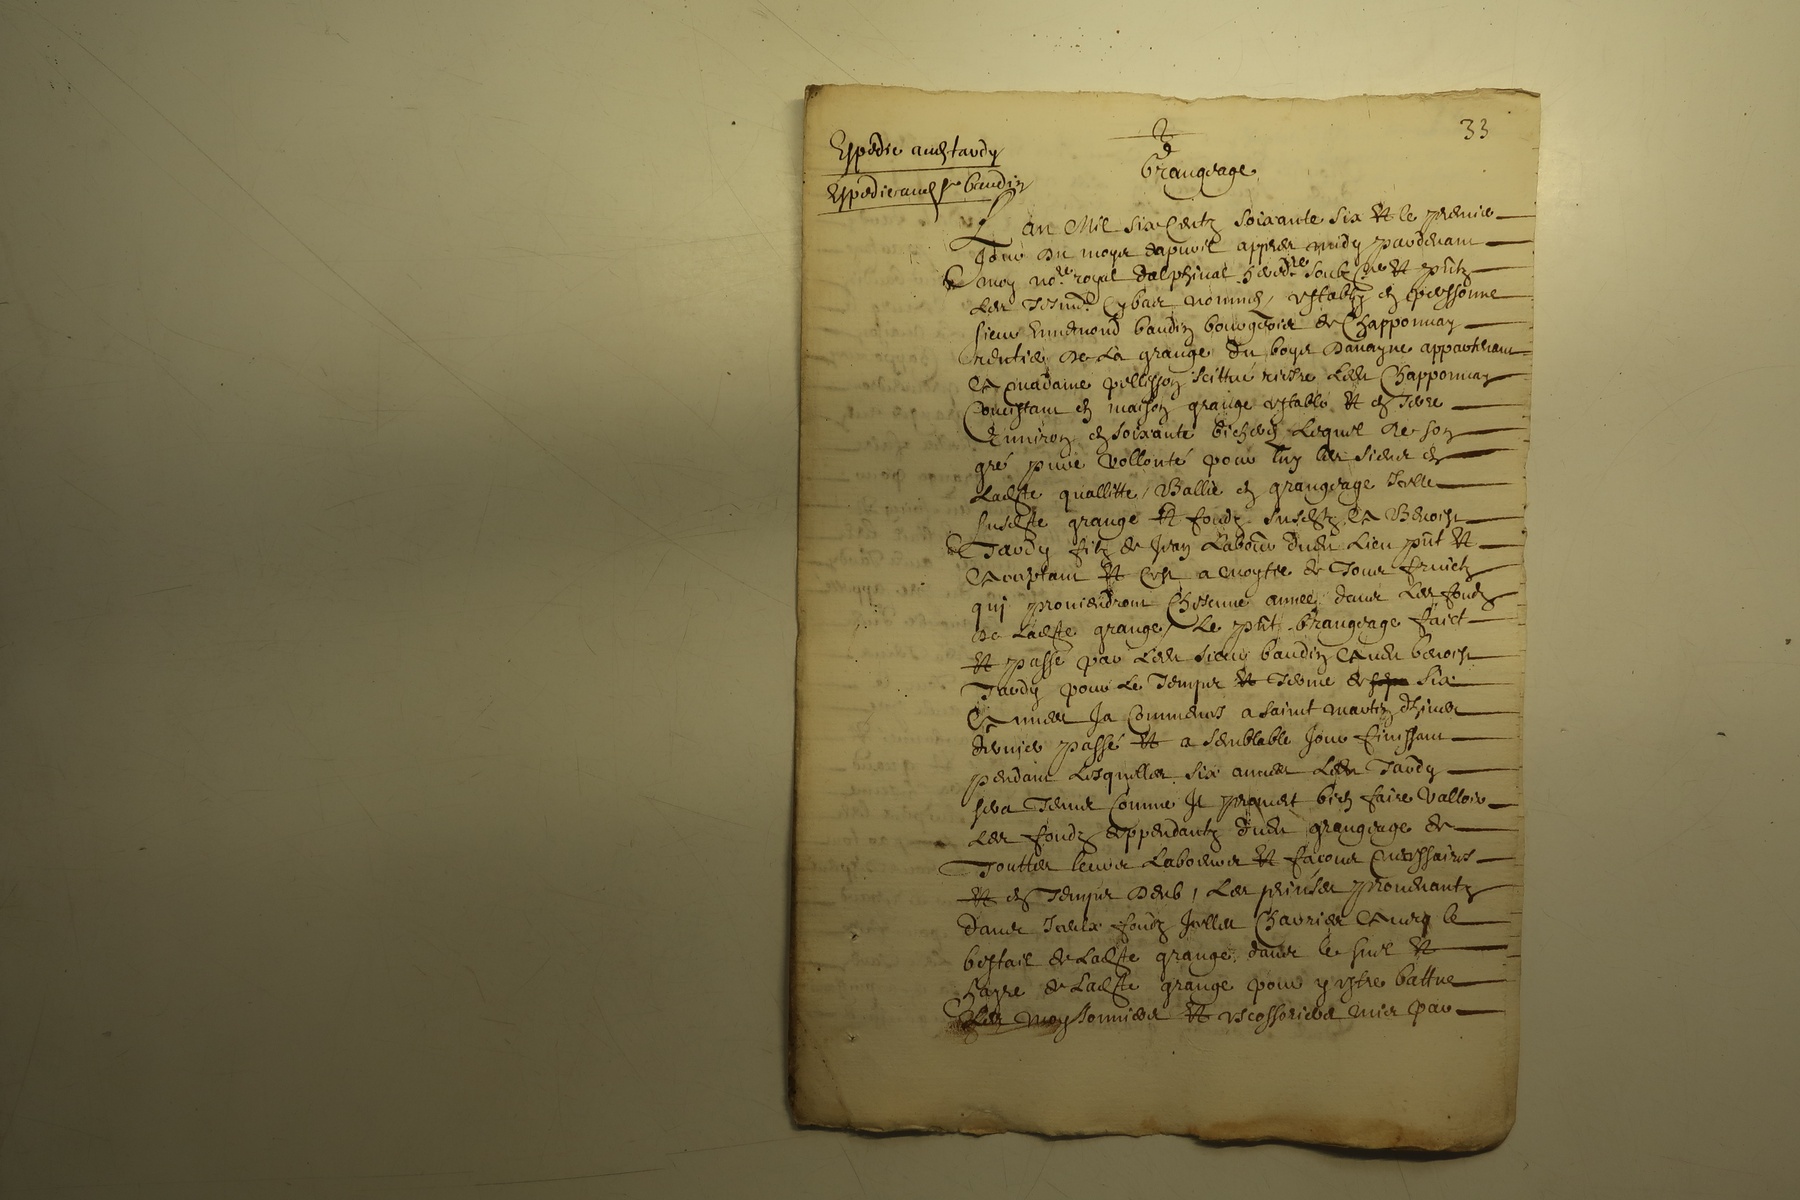 33
Expédié aud tardy
Expédié aud sr baudin
Grangeage
L an Mil six Centz soixante six et le premier
Jour du moys dapvril appres midy pardevant
moy nore royal dalphinal heredre soubzne et pntz
les tesmd Cybas nommes, establÿ en personne
sieur Ennemond baudin bourgeois de Chapponnay
rentier de la grange du boys Danayne appartenant
A madame pellisson scittué riesre led Chapponnay
Concistant en maison grange estable et en terre
Environ en soixante bicherés lequel de son
gré pure vollonté pour luy les siens en
ladte quallitte, Ballie en grangeage Icelle
susdte grange et fondz susdtz, A Benoist
Tardy filz de Jean laboure dudt lieu pnt et
Acceptant et Cest a moytie de tous fruictz
qui proviendront Chescune annee dans les fondz
de ladte grange, le pnt Grangeage faict
et passé par led sieur baudin Audt benoist
Tardy pour le temps et terme de six
Annees Ja Commencé a saint martin dhiver
dernier passé et a semblable Jour finissant
pendant lesquelles six annees ledt Tardy
sera tenu Comme Il promet bien faire valloir
les fondz deppendantz dudt grangeage de
touttes leurs laboures et façons necessaires
et en temps deub, les prinses provenantz
dans Iceux fondz Icelles Charrier Avecq le
bestail de ladte grange, dans le suel et
hayre de ladte grange pour y estre battue
Les moyssonniers et escossoeurs mis par